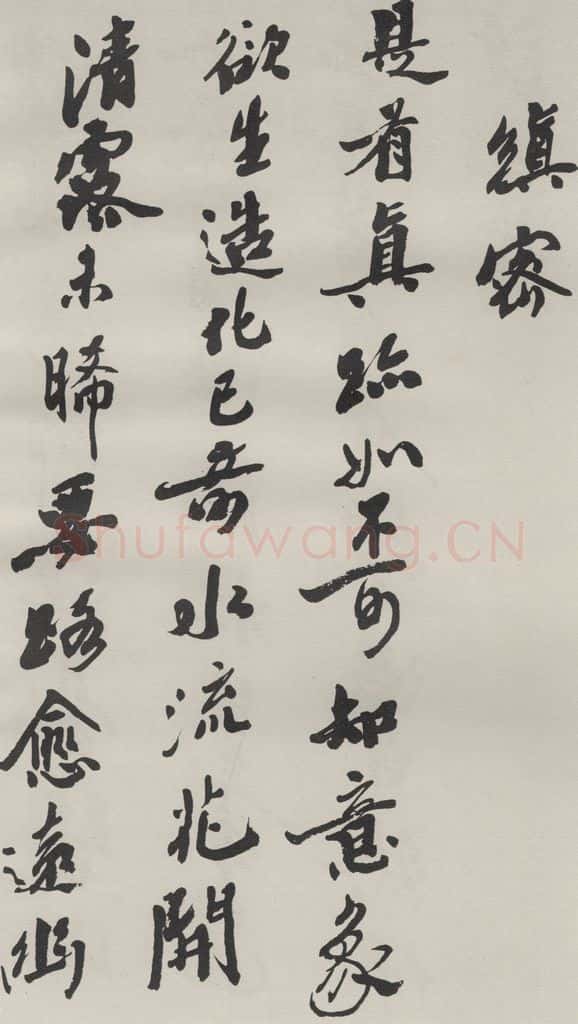 縝密
是有真跡如不可知意象
欲生造化已奇水流花開
清露未晞要路愈遠幽
Shufawang.CN